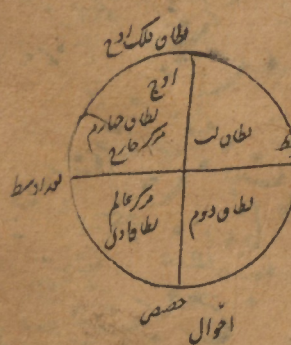 نطاق فلک اوج
اوج
نطاق چهارم
مرکز خارج
نطاق
بعد اوسط
مرکز عالم
نطاق اول
نطاق دوم
حضیض
احوال